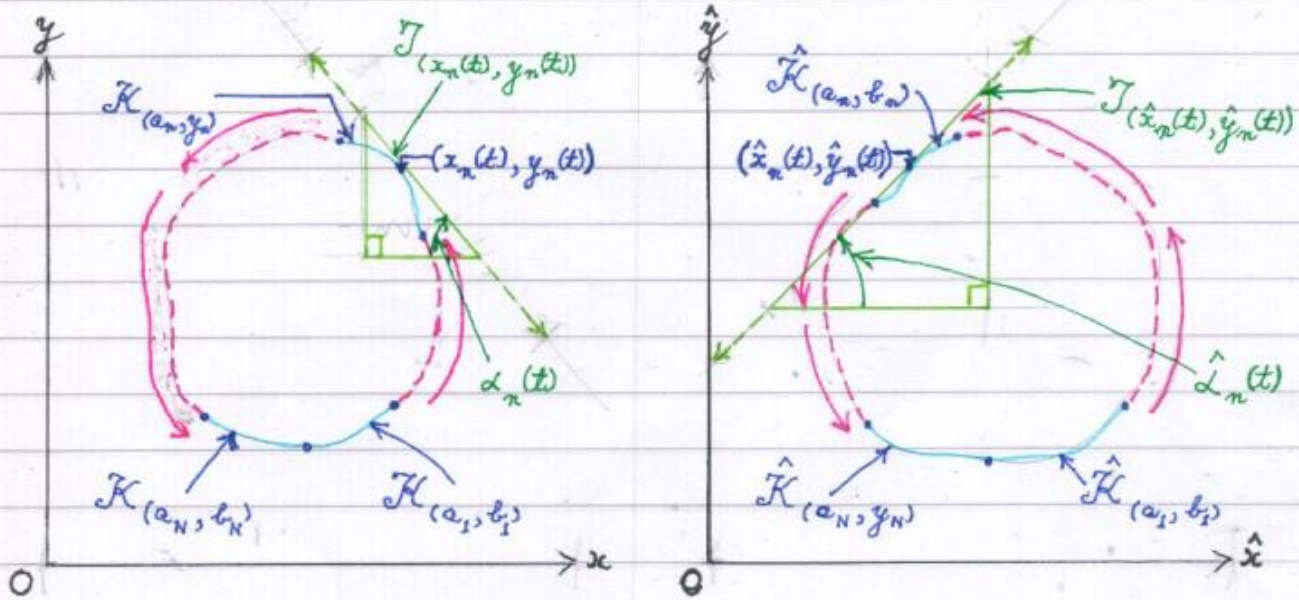 y
𝒯(xₙ(t), yₙ(t))
𝒦(aₙ, yₙ)
(xₙ(t), yₙ(t))
αₙ(t)
𝒦(a_N, b_N)
𝒦(a₁, b₁)
O
x
ŷ
𝒦̂(aₙ, bₙ)
𝒯(x̂ₙ(t), ŷₙ(t))
(x̂ₙ(t), ŷₙ(t))
α̂ₙ(t)
𝒦̂(a_N, y_N)
𝒦̂(a₁, b₁)
O
x̂